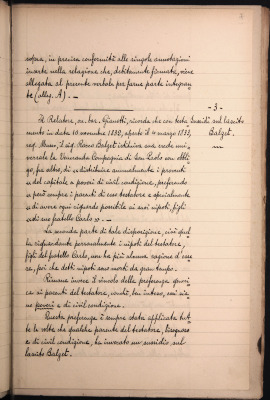 sopra, in precisa conformità alle singole annotazioni
inserte nella relazione che, debitamente firmata, viene
allegata al presente verbale per farne parte integran-
te (alleg. A). —
- 3 -
Il Relatore, cav. Gianotti, ricorda che con testa
Sussidi sul lascito
Balzet.
mento in data 10 novembre 1830, aperto il 4 marzo 1833,
il sig. Rocco Balzet istituiva sua erede uni-
versale la Veneranda Compagnia di San Paolo con obbli-
go, fra altro, di "distribuire annualmente i proventi
" del capitale a poveri di civil condizione, preferendo
" però sempre i parenti di esso testatore e specialmente
" di avere ogni riguardo possibile ai suoi nipoti, figli
" di suo fratello Carlo". —
La seconda parte di tale disposizione, cioè quel-
la riguardante personalmente i nipoti del testatore,
figli del fratello Carlo, non ha più alcuna ragione d'esse
re, poi che detti nipoti sono morti da gran tempo.
Rimane invece il vincolo della preferenza gene-
rica ai parenti del testatore, semprechè, ben inteso, essi sia-
no poveri e di civil condizione.
Questa preferenza è sempre stata applicata tut-
te le volte che qualche parente del testatore, bisognoso
e di civil condizione, ha invocato un sussidio sul
lascito Balzet.